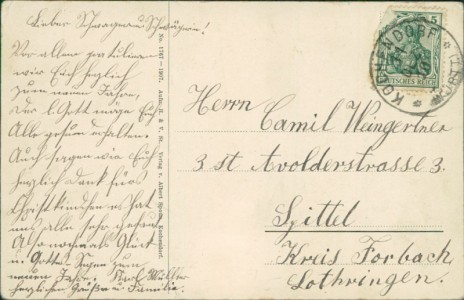 Lieber Schwager u. Schwägerin!
Vor allem gratulieren
wir Euch herzlich
zum neuen Jahre,
Der l. Gott möge Euch
Alle gesund erhalten.
Auch sagen wir Euch
herzlich Dank fürs
Christkindchen es hat
uns alle sehr gefreut
Also nochmals Glück
u. Gottes Segen zum
neuen Jahre. Karl Müller
herzlichen Grüße u. Familie.
No. 1767 - 1907. Aufn. H. & V. St. Verlag v. Albert Kochendorf.
5
DEUTSCHES REICH
KOCHENDORF
Herrn Camil Weingertner
3 st Avolderstrasse 3.
Spittel
Kreis Forbach
Lothringen.